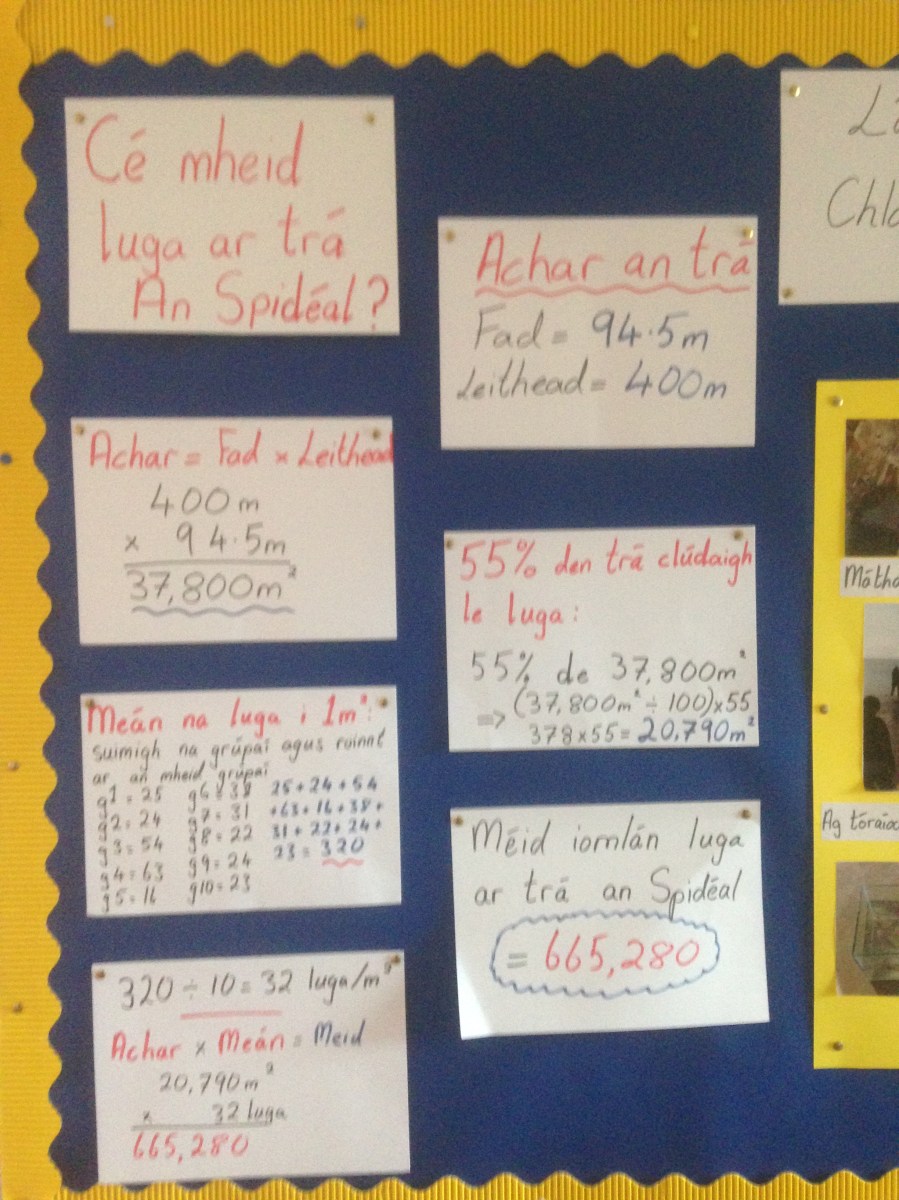 Cé mheid
luga ar trá
An Spidéal?
Achar an trá
Fad = 94.5m
Leithead = 400m
Achar = Fad x Leithead
400m
x 94.5m
37,800m²
55% den trá clúdaigh
le luga:
55% de 37,800m²
=> (37,800m² ÷ 100)x55
378x55 = 20,790m²
Meán na luga i 1m²:
suimigh na grúpaí agus roinnt
ar an mheid grúpaí
g1 = 25 g6 = 38 25+24+54
g2 = 24 g7 = 31 +63+16+38+
g3 = 54 g8 = 22 31+22+24+
g4 = 63 g9 = 24 23 = 320
g5 = 16 g10 = 23
320 ÷ 10 = 32 luga/m²
Achar x Meán = Meid
20,790m²
x 32 luga
665,280
Méid iomlán luga
ar trá an Spidéal
= 665,280
Ag tóraíoc